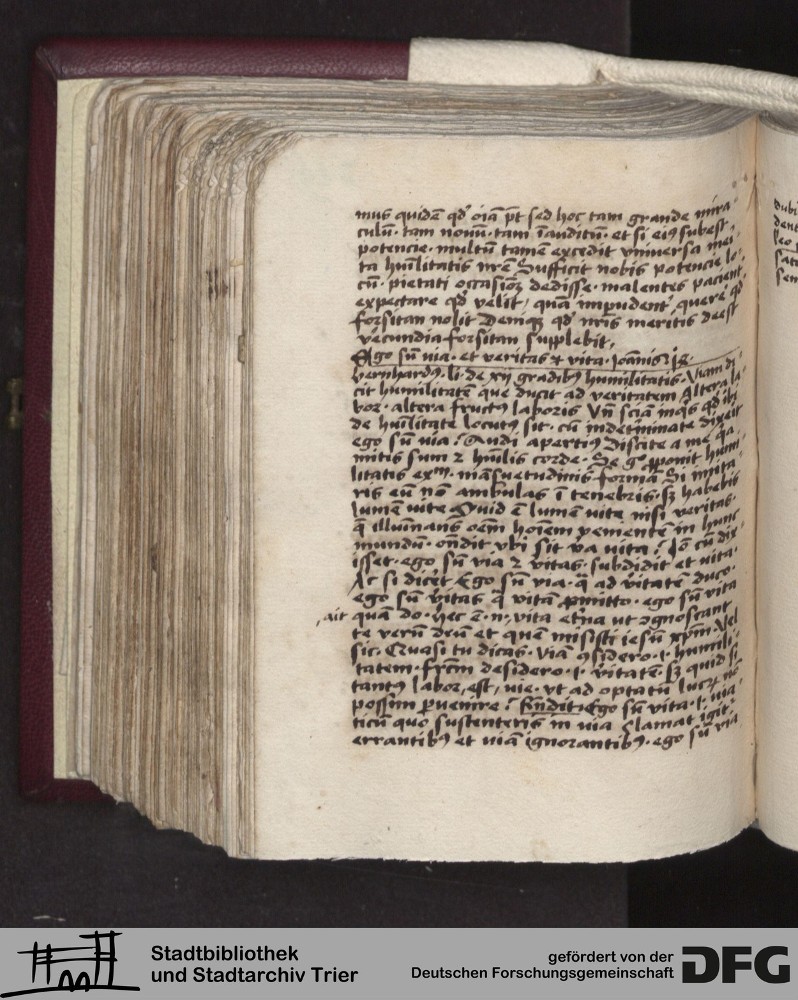 mus quidē qd' oīa p̄t sed hoc tam grande mira
culū· tam nouū· tam īauditū· et si eiꝰ subest
potencie· multū tamē excedit vniuersa mei
ta hūilitatis nr̄e Sufficit nobis potencie lo
cū· pietati occasionē dedisse· malentes pacient'
expectare qd' velit, quā impudent' querē qd'
forsitan nolit Deniqꝫ qd' nr̄is meritis deest
verecundia forsitan supplebit,
Ego sū via· et veritas ⁊ vita· Joānis
bernhardꝰ· li· de xij gradibꝰ humilitatis· Viam di
cit humilitatē que ducit ad veritatem Altera la
bor· altera fructꝰ laboris Vn̄ sciā inqꝰ qd' ibi
de hūilitate locutꝰ sit· cū indet'minate dixerit
ego sū via? Audi apertiꝰ Discite a me qa
mitis sum ⁊ hūilis corde· Se gº ꝓponit humi
litatis exm̄· māsuetudinis formā Si imita
ris eū nō ambulas ī tenebris· sꝫ habebis
lumē vite Quid ē lumē vite nisi veritas·
q̄ illuīnans oēm hoīem venientē in hunc
mundū· on̄dit vbi sit v'a vita? Jō cū dix
isset· ego sū via ⁊ v'itas· subdidit et vita·
Ac si dicer̄t Ego sū via· q̄ ad v'itatē duco·
ego sū v'itas q̄ vitā ꝓmitto· ego sū vita
,ait quā do· hec ē· n̄, vita et'na ut ꝯgnoscant
te verū deū et quē misisti iesū xp̄m· Vel
sic· Quasi tu dicas· Viā ꝯsidero· i· humili
tatem· fr̄cm desidero· i· v'itatē· sꝫ quid si
tantꝰ labor, est, vie· vt ad optatū nō
possim ꝑuenire? Rn̄dit· Ego sū vita· i· via
ticū quo sustenteris in via Clamat igit'
errantibꝰ et viā ignorantibꝰ· ego sū via
Stadtbibliothek
und Stadtarchiv Trier
gefördert von der
Deutschen Forschungsgemeinschaft
DFG